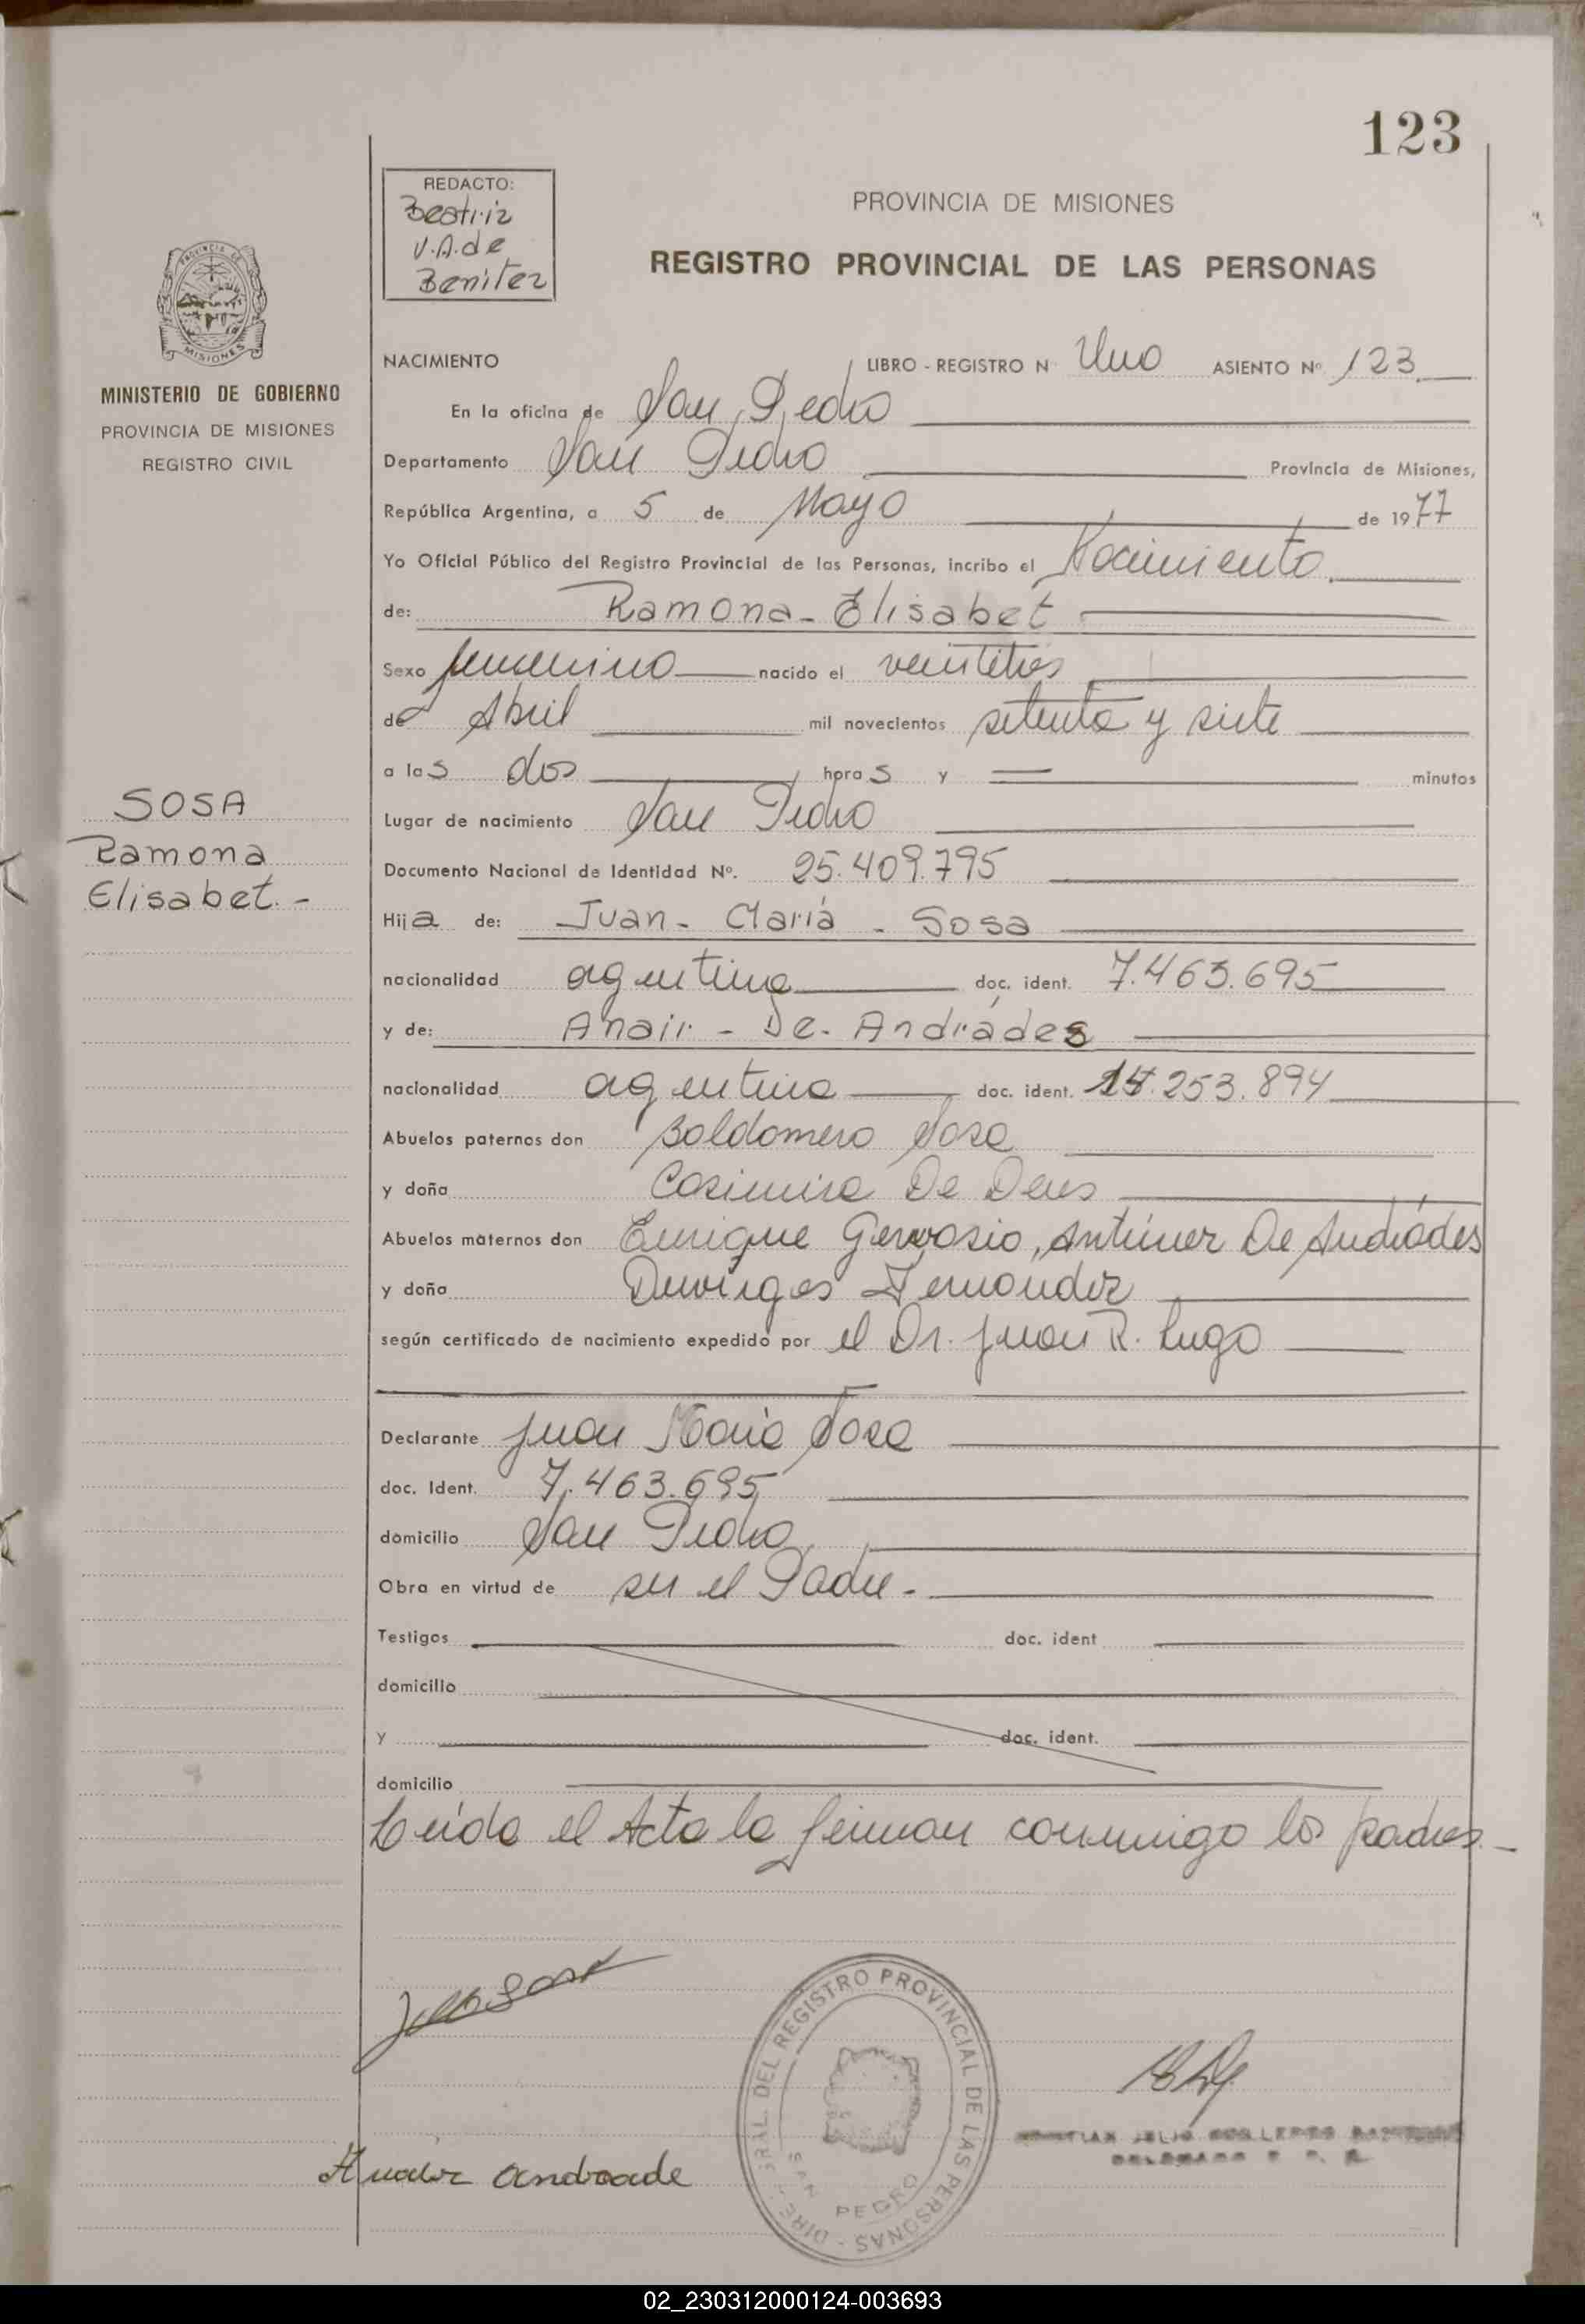 123
REDACTO:
Beatriz
V.A.de
Benitez
PROVINCIA DE MISIONES
REGISTRO PROVINCIAL DE LAS PERSONAS
MINISTERIO DE GOBIERNO
PROVINCIA DE MISIONES
REGISTRO CIVIL
SOSA
Ramona
Elisabet.-
NACIMIENTO LIBRO - REGISTRO N Uno ASIENTO Nº 123
En la oficina de San Pedro
Departamento San Pedro Provincia de Misiones,
República Argentina, a 5 de Mayo de 1977
Yo Oficial Público del Registro Provincial de las Personas, incribo el Nacimiento
de: Ramona - Elisabet
Sexo femenino nacido el veintitres
de Abril mil novecientos setenta y siete
a las dos horas y minutos
Lugar de nacimiento San Pedro
Documento Nacional de Identidad Nº. 25.409.795
Hija de: Juan - María - Sosa
nacionalidad agentina doc. ident. 7.463.695
y de: Anair - De - Andrádes
nacionalidad agentina doc. ident. 253.894
Abuelos paternos don Baldomero Sosa
y doña Casimira De Deus
Abuelos maternos don Enrique Gervasio, Antúnez De Andrádes
y doña Fernandez
según certificado de nacimiento expedido por el Dr. Juan R. Lugo
Declarante Juan María Sosa
doc. Ident. 7.463.695
domicilio San Pedro
Obra en virtud de ser el Padre -
Testigos doc. ident
domicilio
y doc. ident.
domicilio
Leída el Acta la firman conmigo los padres.-
DEL REGISTRO PROVINCIAL DE LAS PERSONAS - DIRE
SAN PEDRO
andrade
02_230312000124-003693